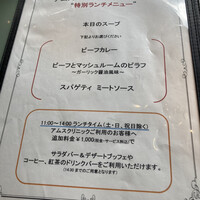 "特別ランチメニュー"
本日のスープ
下記よりお選びください
ビーフカレー
ビーフとマッシュルームのピラフ
~ガーリック醤油風味~
スパゲティ ミートソース
11:00~14:00ランチタイム(土・日、祝日除く)
アムスクリニックご利用のお客様へ
追加料金 ¥1,000(税金・サービス料込)で
サラダバー&デザートブッフェや
コーヒー、紅茶のドリンクバーをご利用いただけます。
(14:30までのご用意となります)